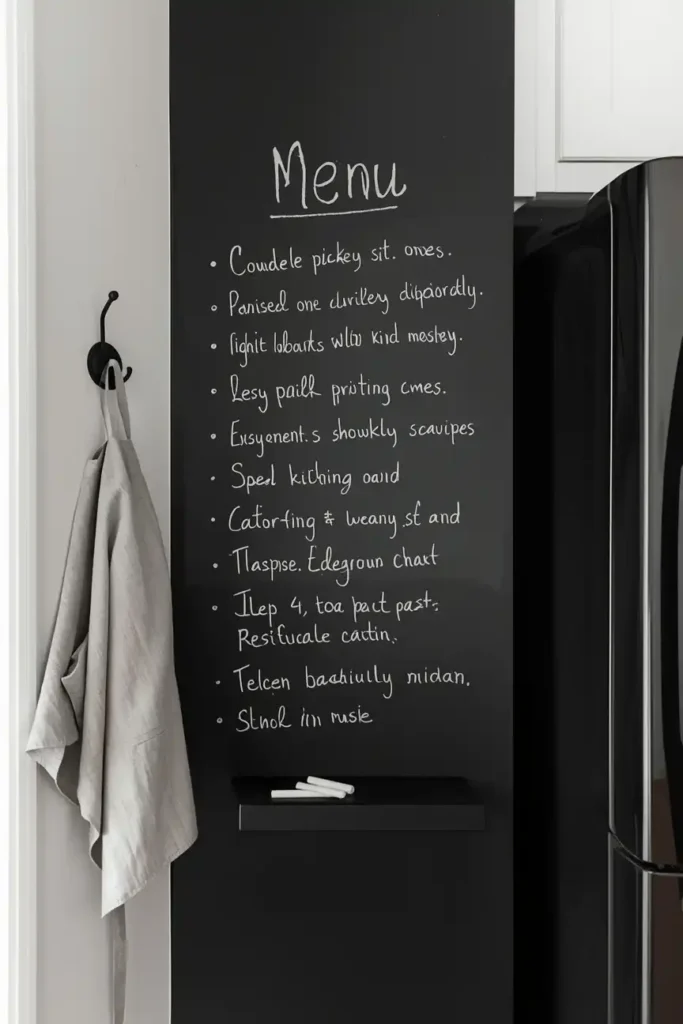 Menu
• Coudele pickey sit. omes.
• Panised one clvrilery dibjaordly.
• lighit lobarts wllo kid mosley.
• Resy pailk priiting cmes.
• Ensyenent.s showkly scauipes
• Sped kiching oand
• Catorfing & weany .st and
• Tlaspse. Edegroun chaxt
• Ilep 4, toa pact past.
Resifucale cactin.
• Telcen bashiully midan.
• Stnol in rusie